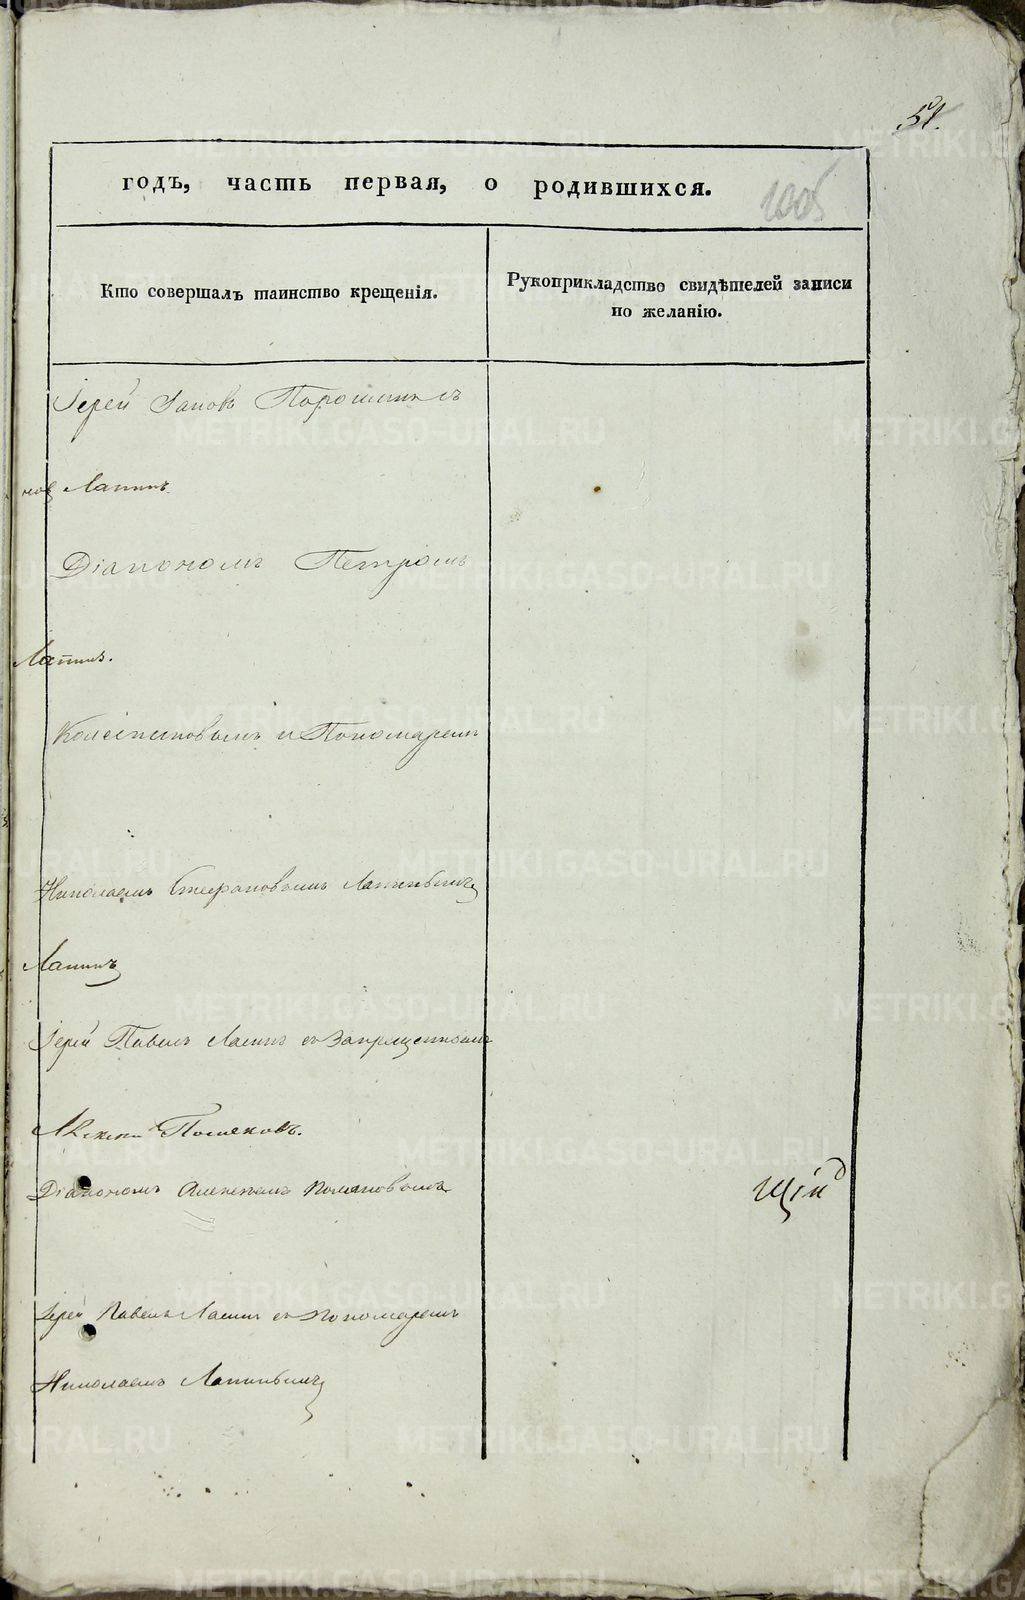 51.
годъ, часть первая, о родившихся.
1005
Кто совершалъ таинство крещенія.
Рукоприкладство свидѣтелей записи
по желанію.
Іерей Іаковъ Порошинъ съ
Лапинъ
Діакономъ Петромъ
Лапинъ.
Колесниковымъ и Пономаремъ
Николаемъ Стефановымъ Лапинымъ
Лапинъ
Іерей Павелъ Лапинъ съ Запрещеннымъ
Поляковъ.
Діакономъ Алексѣемъ Поляковымъ
щій
Іерей Павелъ Лапинъ съ Пономаремъ
Николаемъ Лапинымъ
METRIKI.GASO-URAL.RU